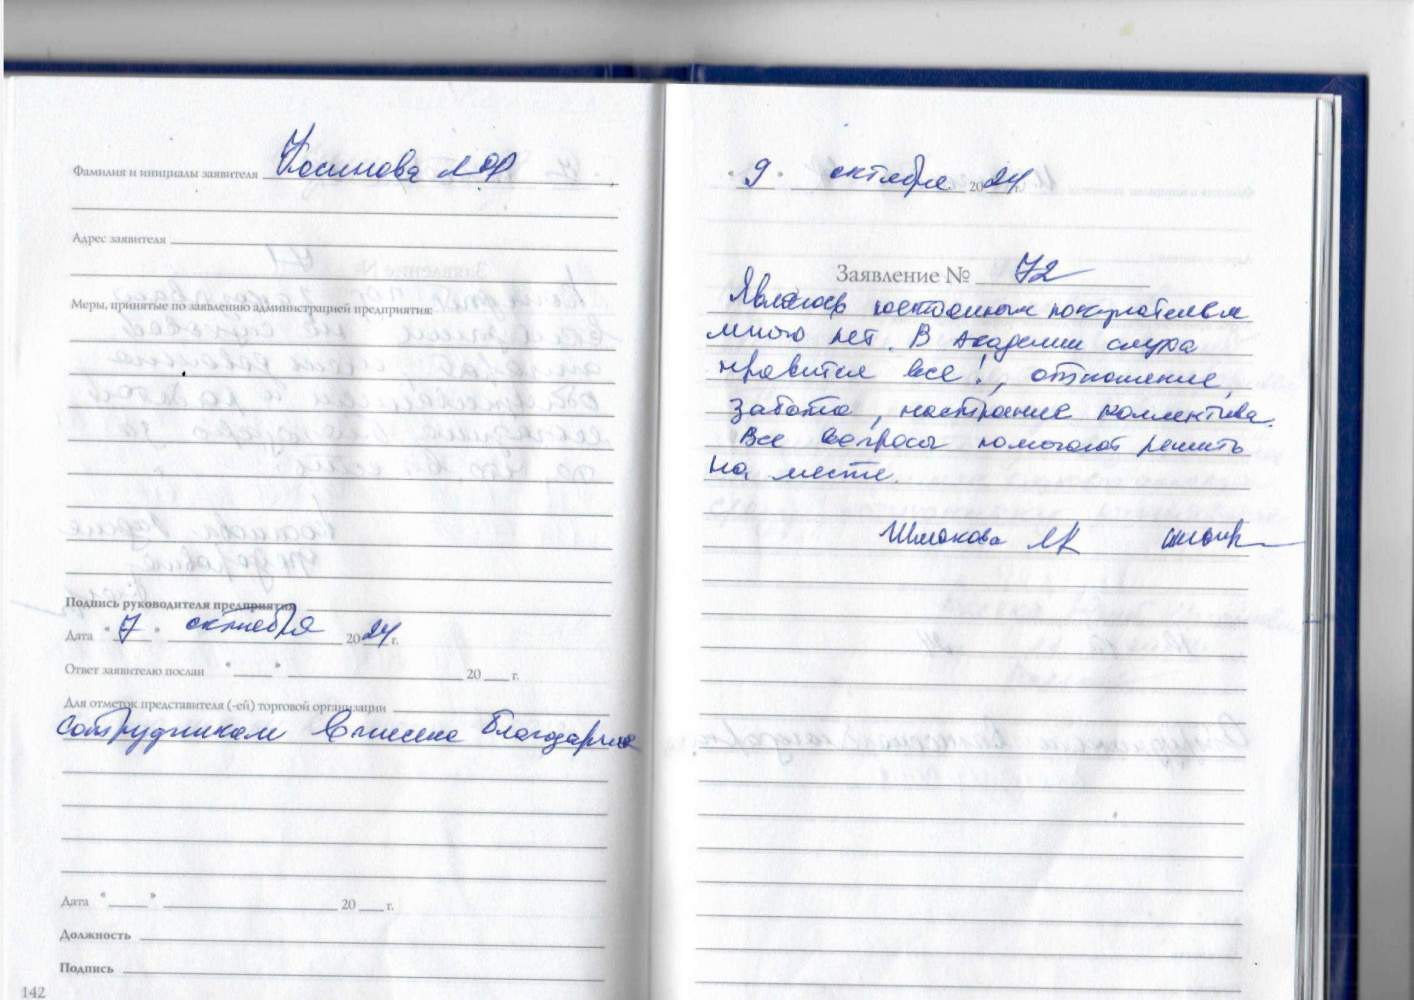 Фамилия и инициалы заявителя Косинова Л Ф
Адрес заявителя
Меры, принятые по заявлению администрацией предприятия:
Подпись руководителя предприятия
Дата "7" октября 2024 г.
Ответ заявителю послан " " 20 г.
Для отметок представителя (-ей) торговой организации
Сотрудникам вынесена благодарность
Дата " " 20 г.
Должность
Подпись
142
"9" октября 2024
Заявление № 72
Являюсь постоянным покупателем
много лет. В Академии слуха
нравится все!, отношение,
забота, настроение коллектива.
Все вопросы помогают решить
на месте.
Шмакова Л К